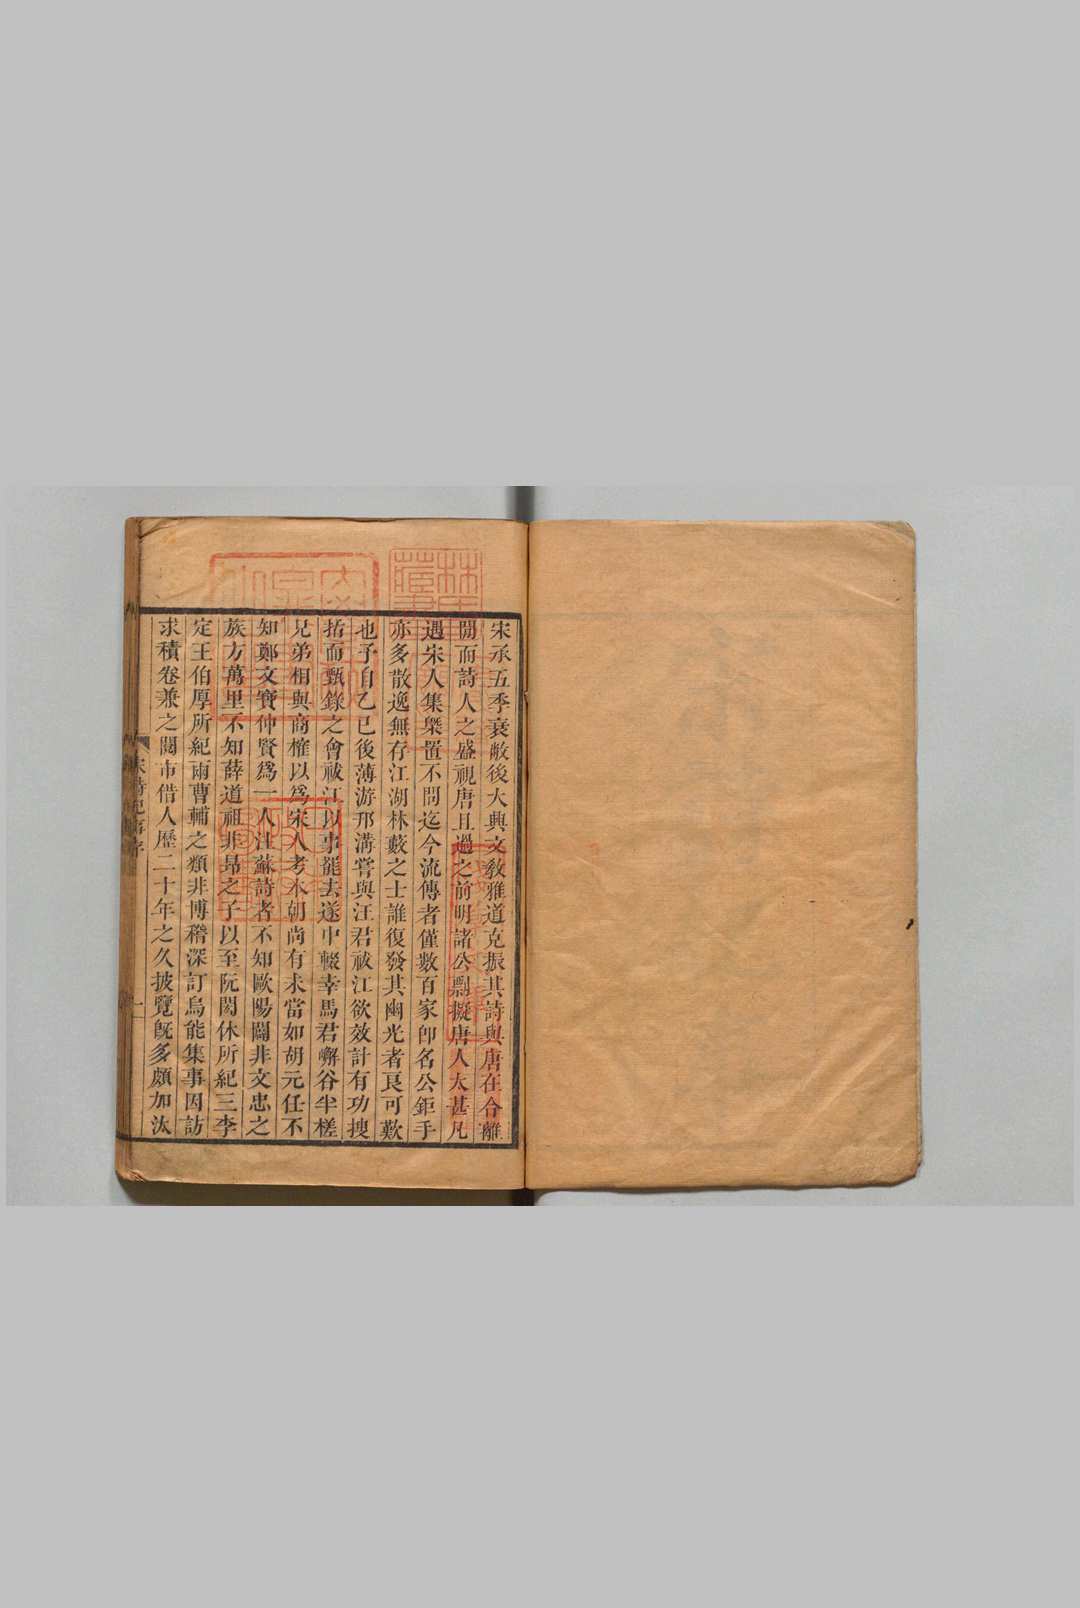 宋承五季衰敝後大興文教雅道克振其詩與唐在合離
間而詩人之盛視唐且過之前明諸公剽擬唐人太甚凡
遇宋人集槩置不問迄今流傳者僅數百家即名公鉅手
亦多散逸無存江湖林藪之士誰復發其幽光者良可歎
也予自乙巳後薄游邗溝嘗與汪君祓江欲效計有功搜
括而甄錄之會祓江以事罷去遂中輟幸馬君嶰谷半槎
兄弟相與商榷以爲宋人考本朝尚有未當如胡元任不
知鄭文寶仲賢爲一人注蘇詩者不知歐陽闢非文忠之
族方萬里不知薛道祖非昂之子以至阮閎休所紀三李
定王伯厚所紀兩曹輔之類非博稽深訂烏能集事因訪
求積卷兼之閱市借人歷二十年之久披覽旣多頗加汰
宋詩紀事序
一